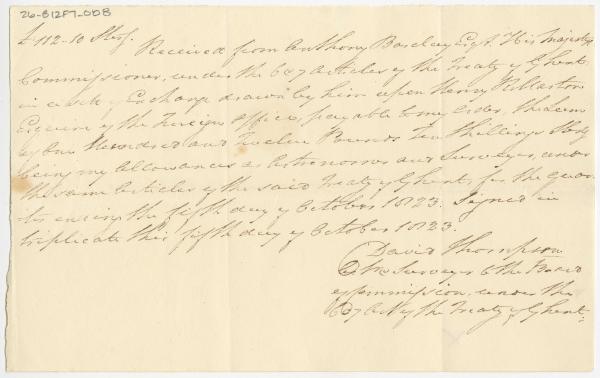 26-B12F7-ODB
£112-10 Sterg. Received from Anthony Barclay Esqr. His Majestys
Commissioner, under the 6 & 7 Articles of the Treaty of Ghent
in a sett of Exchange drawn by him upon Henry
Esquire of the Foreign Office, payable to my order, the sum
of One Hundred and Twelve Pounds Ten Shillings Sterg
being my Allowances as Astronomer and Surveyor, under
the same Articles of the said Treaty of Ghent, for the quar
ter ending the fifth day of October 1823. Signed in
triplicate this fifth day of October 1823.
David Thompson
Surveyor to the Board
of Commission, under the
6 & 7 Art of the Treaty of Ghent.